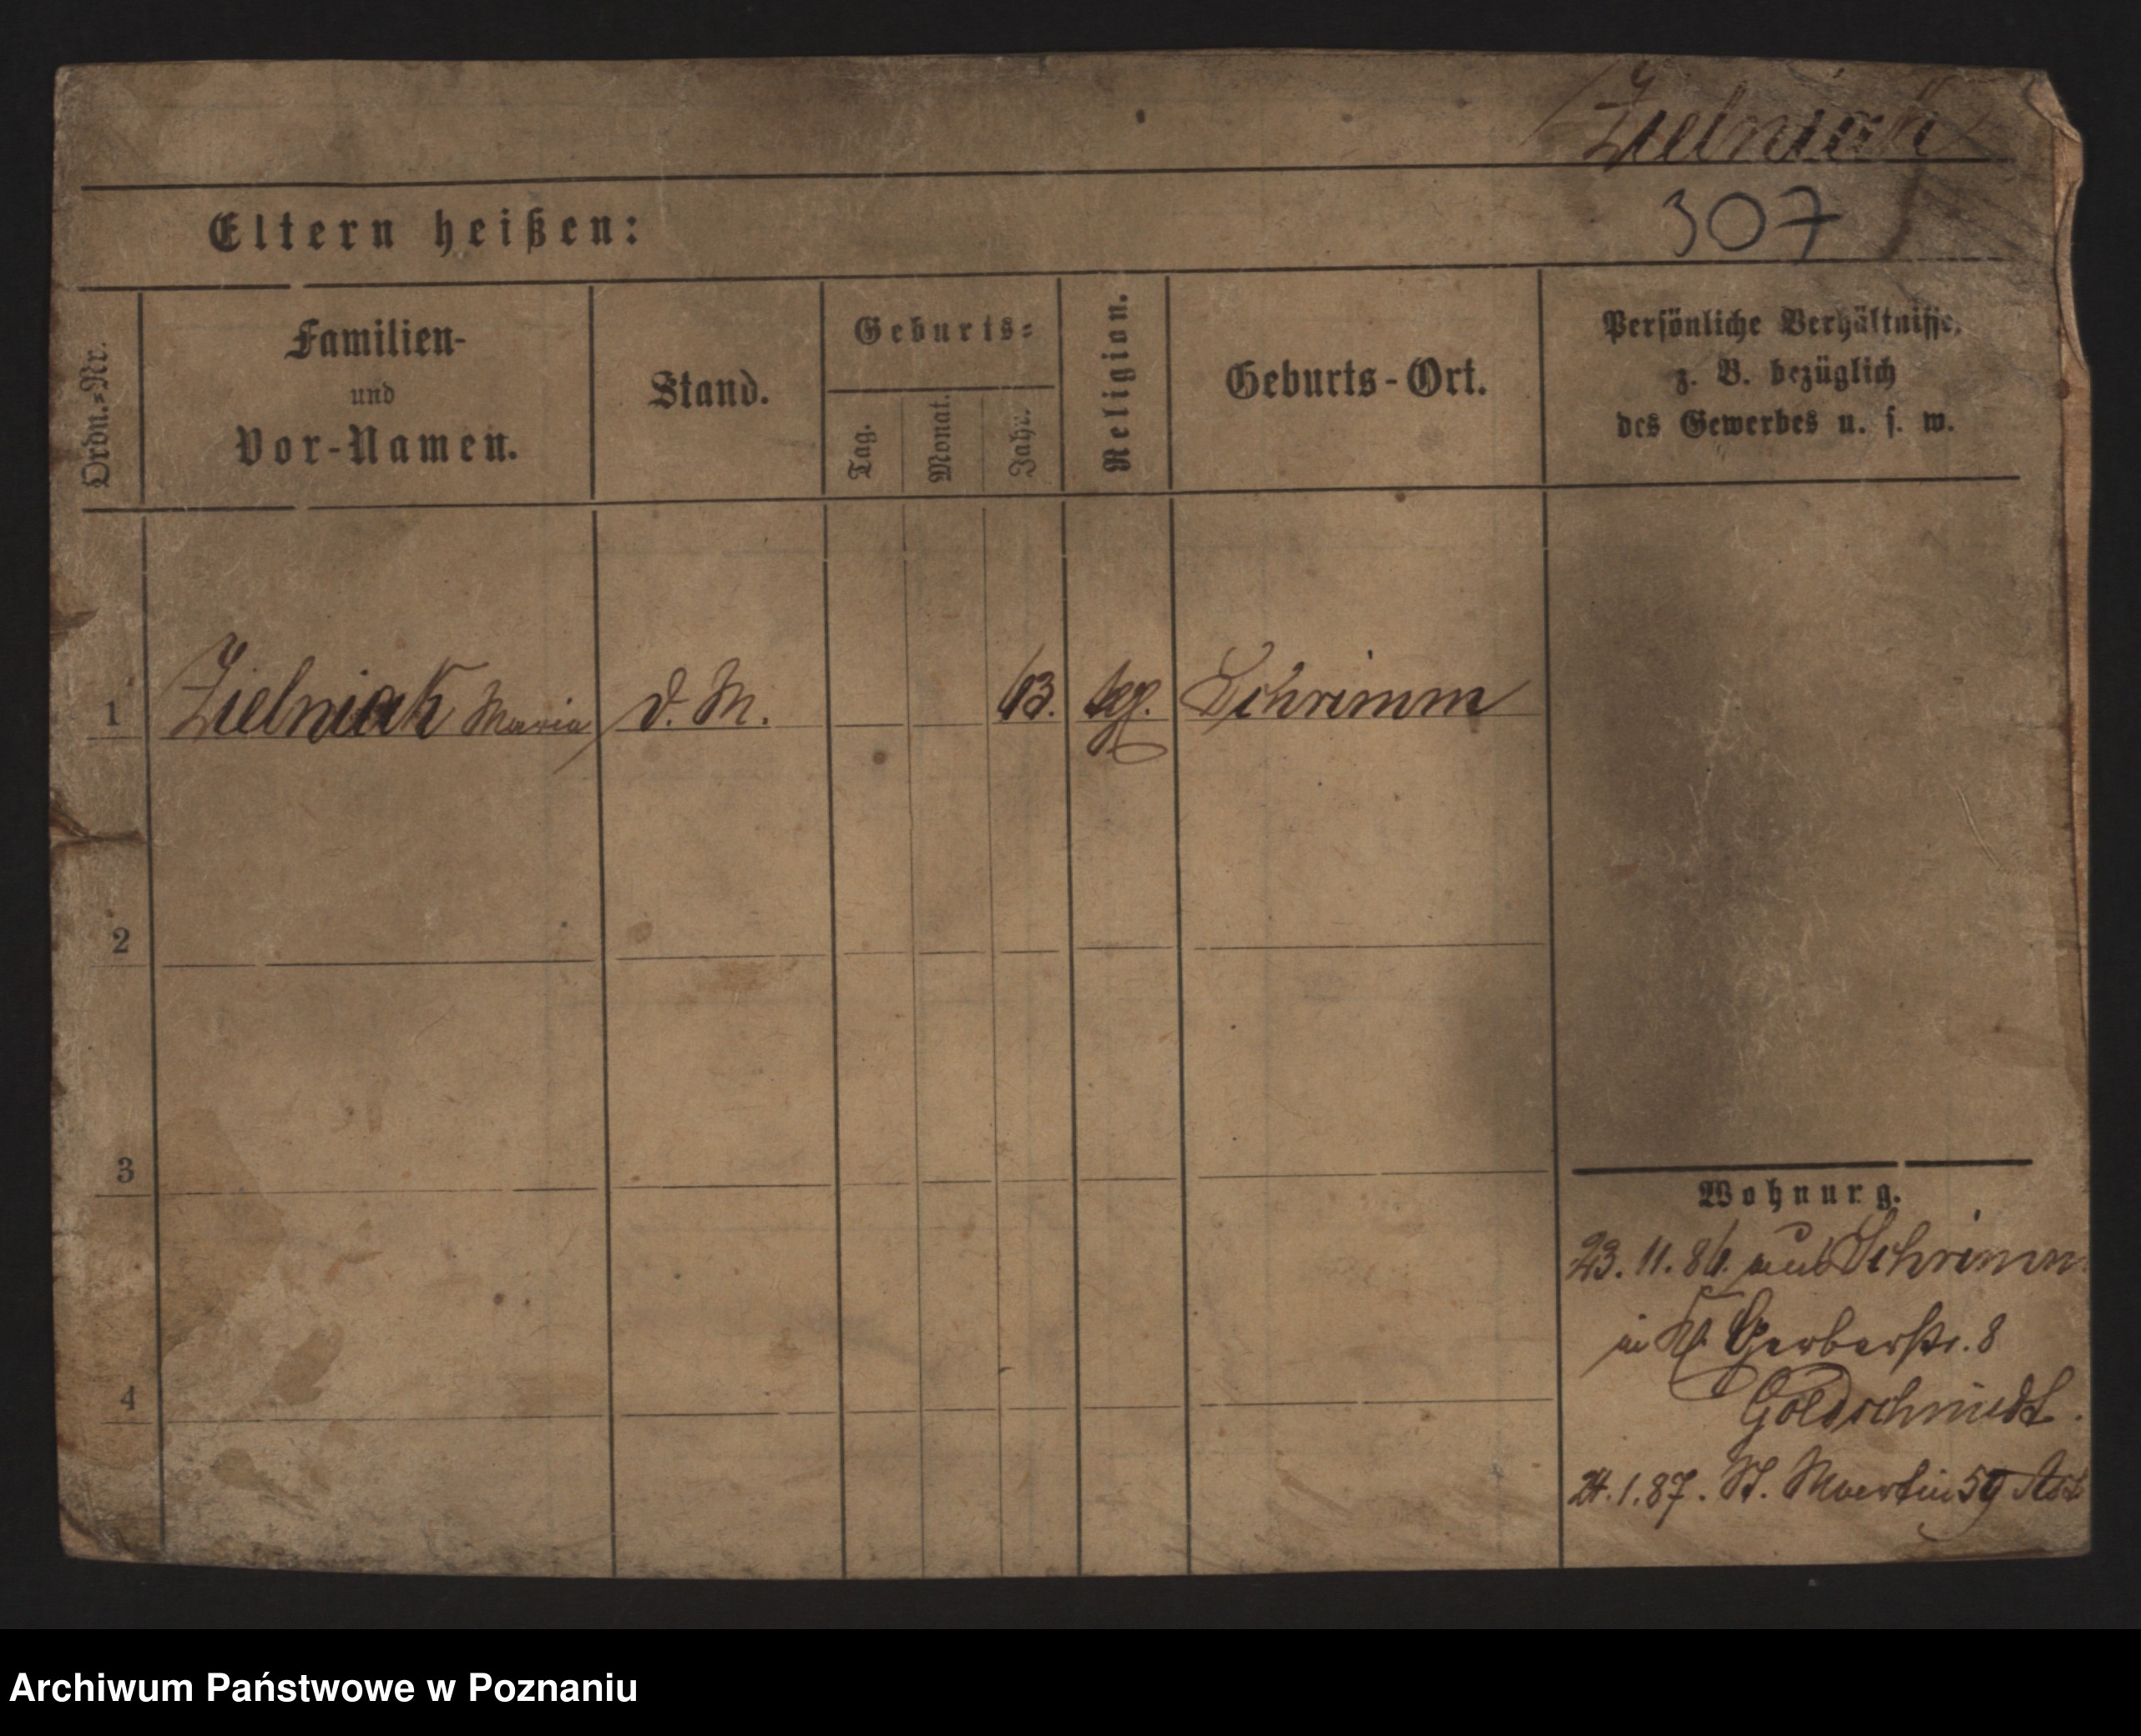 Zielniak
307
Eltern heißen:
Ordn.-Nr.
Familien-
und
Vor-Namen.
Stand.
Geburts-
Tag.
Monat.
Jahr.
Religion.
Geburts-Ort.
Persönliche Verhältnisse,
z. B. bezüglich
des Gewerbes u. s. w.
1 Zielniak Maria d. M. Schrimm
2
3
4
Wohnung.
23.11.86. aus Schrimm
in Gerberstr. 8
Goldschmidt.
24.1.87. St. Martin 59
Archiwum Państwowe w Poznaniu